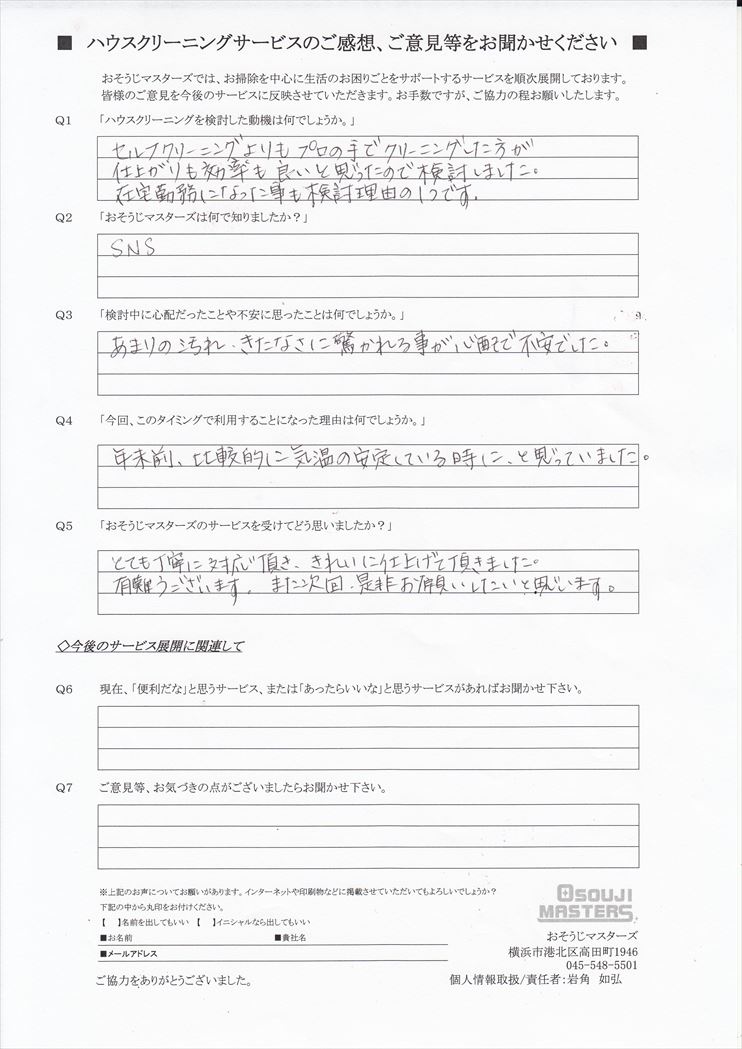 ■ ハウスクリーニングサービスのご感想、ご意見等をお聞かせください ■
おそうじマスターズでは、お掃除を中心に生活のお困りごとをサポートするサービスを順次展開しております。
皆様のご意見を今後のサービスに反映させていただきます。お手数ですが、ご協力の程お願いしたします。
Q1 「ハウスクリーニングを検討した動機は何でしょうか。」
セルフクリーニングよりもプロの手でクリーニングした方が
仕上がりも効率も良いと思ったので検討しました。
在宅勤務になった事も検討理由の1つです。
Q2 「おそうじマスターズは何で知りましたか？」
SNS
Q3 「検討中に心配だったことや不安に思ったことは何でしょうか。」
あまりの汚れ・きたなさに驚かれる事が心配で不安でした。
Q4 「今回、このタイミングで利用することになった理由は何でしょうか。」
年末前、比較的に気温の安定している時に、と思っていました。
Q5 「おそうじマスターズのサービスを受けてどう思いましたか？」
とても丁寧に対応頂き、きれいに仕上げて頂きました。
有難うございます。また次回、是非お願いしたいと思います。
◇今後のサービス展開に関連して
Q6 現在、「便利だな」と思うサービス、または「あったらいいな」と思うサービスがあればお聞かせ下さい。
Q7 ご意見等、お気づきの点がございましたらお聞かせ下さい。
※上記のお声についてお願いがあります。インターネットや印刷物などに掲載させていただいてもよろしいでしょうか？
下記の中から丸印をお付けください。
【 】名前を出してもいい 【 】イニシャルなら出してもいい
■お名前 ■貴社名
■メールアドレス
ご協力をありがとうございました。
OSOUJI
MASTERS
おそうじマスターズ
横浜市港北区高田町1946
045-548-5501
個人情報取扱/責任者：岩角 如弘